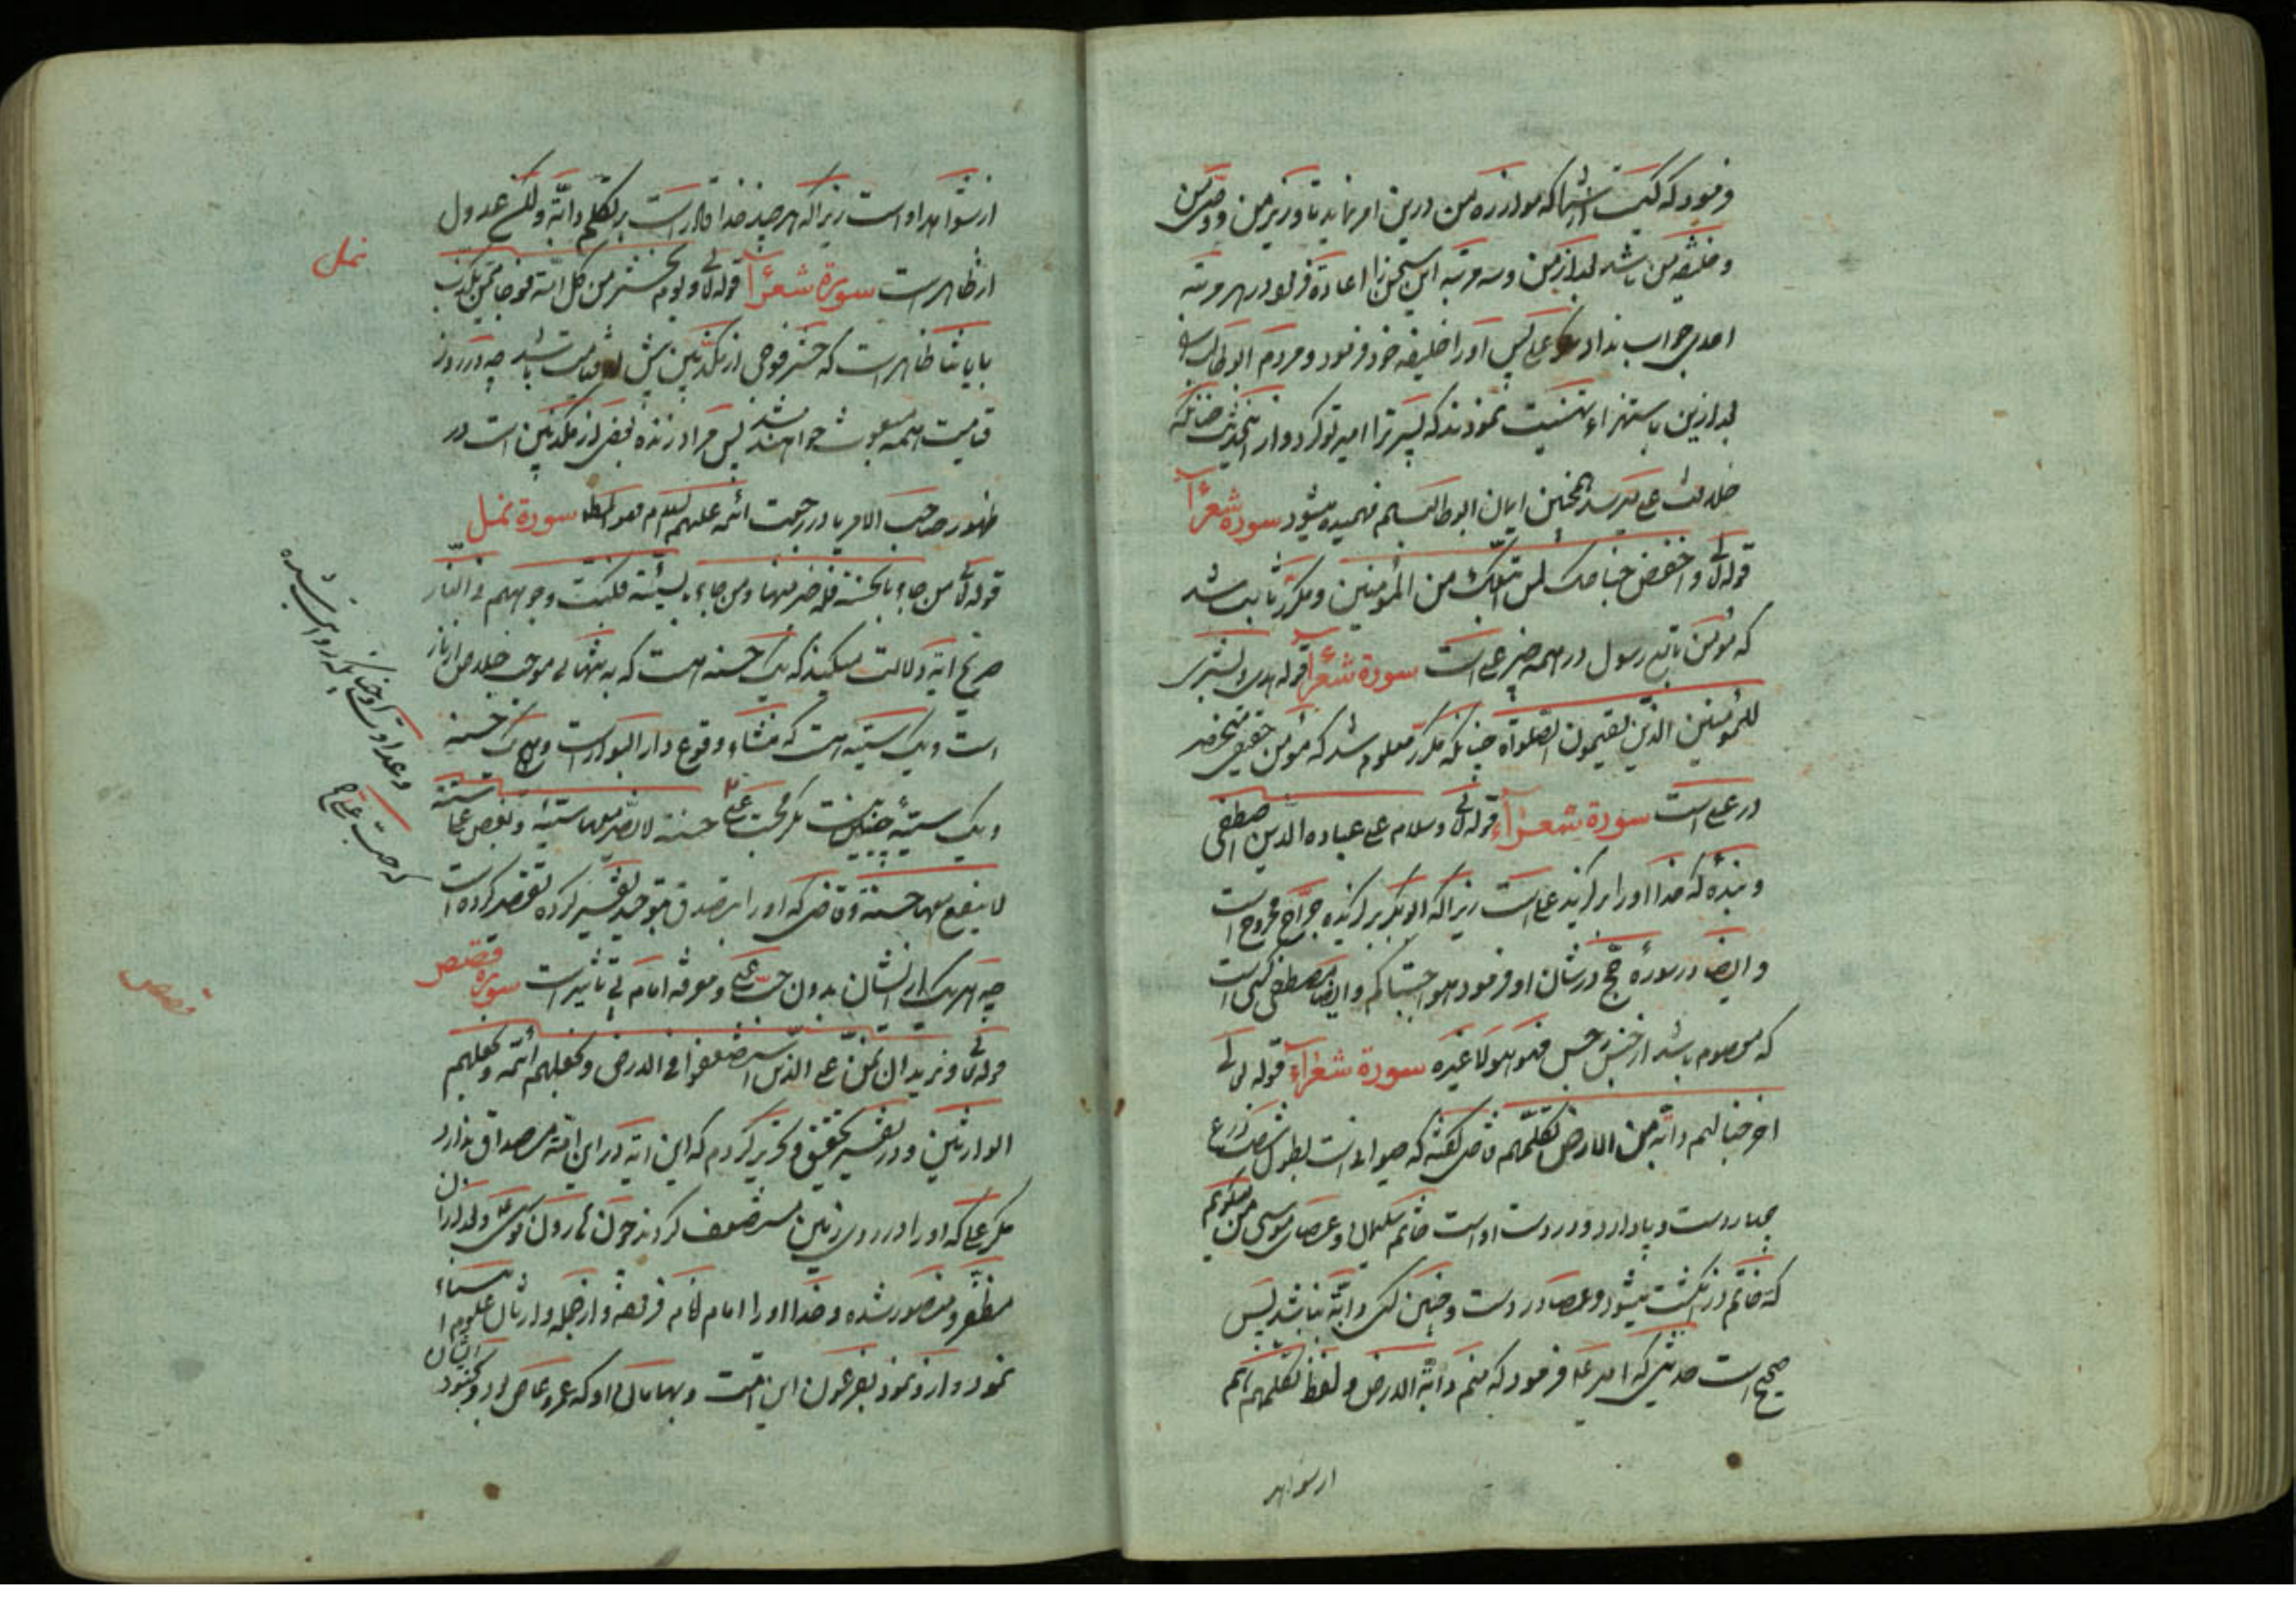 و فرمود که کیست از شما که موازره من درین امر نماید تا وزیر من و وصی من
و خلیفه من باشد بعد از من و سه مرتبه این سخن را اعاده فرمود در هر مرتبه
احدی جواب نداد مگر علی پس او را خلیفه خود فرمود و مردم ابوطالب را
بعد ازین باستهزاء تهنیت نمودند که پسر ترا امیر تو کرد و از این حدیث چنانکه
خلافت علی میرسد همچنین ایمان ابوطالب هم فهمیده میشود سورة شعرآء
قوله تعالی و اخفض جناحک لمن اتبعک من المؤمنین و مکرر ثابت شد
که مؤمن تابع رسول در همه چیز علی است سورة شعرآء قوله هدی و بشری
للمؤمنین الذین یقیمون الصلواة چنانکه مکرر معلوم شد که مؤمن حقیقی منحصر
در علی است سورة شعرآء قوله تعالی و سلام علی عباده الذین اصطفی
و بنده که خدا او را برگزید علی است زیرا که ابوبکر برگزیده جراح مجروح است
و ایضا در سورهٔ حج در شان او فرمود هو اجتباکم و ایضا مصطفی کسی است
که معصوم باشد از جنس رجس فهو هو لا غیره سورة شعرآء قوله تعالی
اخرجنا لهم دابة من الارض تکلمهم قاضی گفته که حیوانی است بطول شصت ذرع
چهار دست و پا دارد و در دست اوست خاتم سلیمان و عصای موسی من میگویم
که خاتم در انگشت میشود و عصا در دست و چنین کسی دابة نباشد پس
صحیح است حدیثی که امیر ع فرمود که منم دابة الارض و لفظ تکلمهم هم
از سواهد
از شواهد اوست زیرا که هر چند خدا قادر است بر تکلم دابه ولکن عدول
از ظاهر است سورة شعرآء قوله تعالی و یوم نحشر من کل امة فوجا ممن یکذب
نمل
بایاتنا ظاهر است که حشر فوجی از مکذبین پیش از قیامت باشد چه در روز
قیامت همه مبعوث خواهند شد پس مراد زنده بعضی از مکذبین است در
ظهور صاحب الامر یا در رجعت ائمه علیهم السلام سورة نمل
قوله تعالی من جاء بالحسنة فله خیر منها و من جاء بالسیئة فکبت وجوههم فی النار
صریح ایه دلالت میکند که یک حسنه هست که به تنهائی موجب خلاص از نار
است و یک سیئه هست که منشاء وقوع دار البوار است و یک حسنه
و یک سیئه چنین نیست مگر محبت علی ع حسنة لا تضر معها سیئة و بغض علی سیئة
و عداوت او چنانکه روایت شده
که حب علی ع
لا ینفع معها حسنة و قاضی که او را بتصدق توحید تفسیر کرده تقصیر کرده است
چه هر یک از ایشان بدون حب علی و معرفة امام بی تاثیر است سورة قصص
قصص
قوله تعالی و نرید ان نمن علی الذین استضعفوا فی الارض و نجعلهم ائمة و نجعلهم
الوارثین و در تفسیر تحقیق و تحریر کردم که این ایه در این امة مصداق ندارد
مگر علی که او را در روی زمین مستضعف کردند چون هارون موسی و بعد از ان
مظفر و منصور شده و خدا او را امام نام فرقه و از جمله وارثان علوم انبیاء
نمود و از نمود بفرعون این امت و بهامان او که عمرو عاص بود و بجنود ایشان